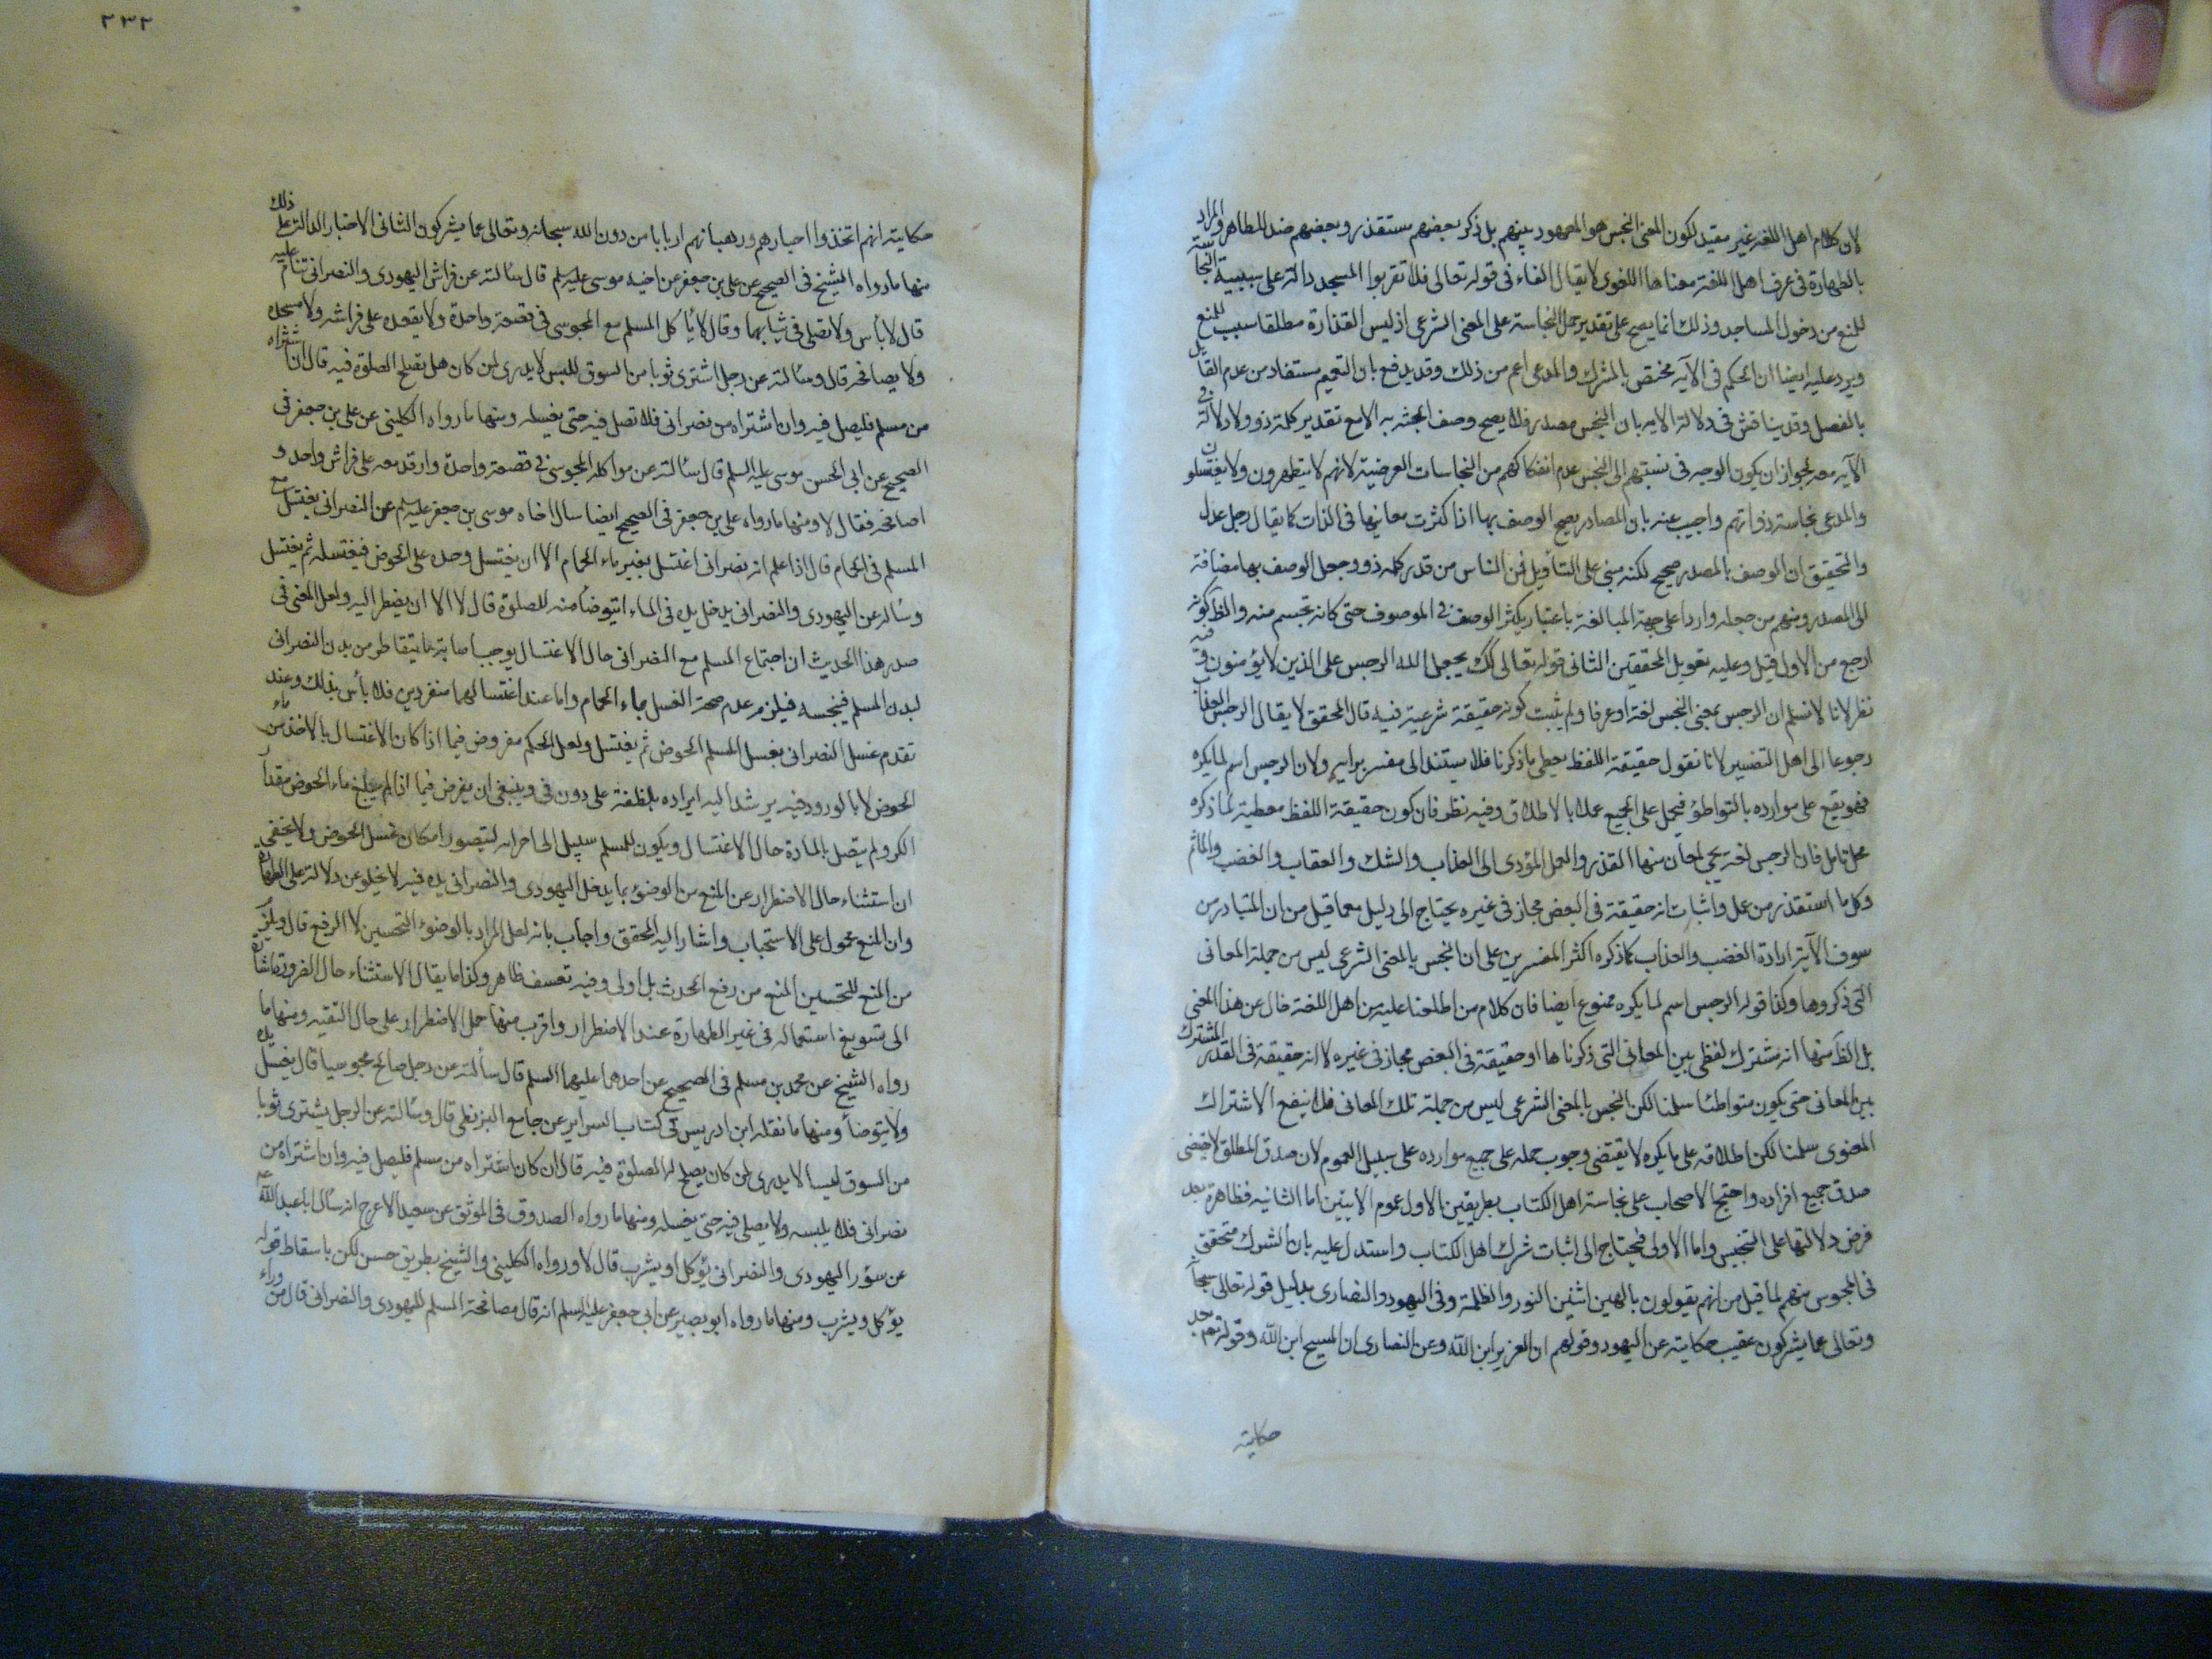 لان كلام اهل اللغه غير مقيد لكون المعنى النجس هو المعهود بينهم بل ذكر بعضهم مستقذر وبعضهم ضد للطاهر والمراد
بالطهارة في عرف اهل اللغة معناها اللغوى لا يقال الفاء في قوله تعالى فلا تقربوا المسجد دالة على سببية النجاسة
للمنع من دخول المساجد وذلك انما يصح على تقدير حمل النجاسة على المعنى الشرعى اذ ليس القذارة مطلقا سبب للمنع
ويرد عليه ايضا ان الحكم في الآيه مختص بالمشرك والمدعى اعم من ذلك وقد يدفع بان التعميم مستفاد من عدم القائل
بالفصل وقد يناقش في دلالة الايه بان النجس مصدر فلا يصح وصف الجثه به الا مع تقدير كلمة ذو ولا دلالة في
الآيه معه لجواز ان يكون الوجه في نسبتهم الى النجس عدم انفكاكهم من النجاسات العرضية لانهم لا يتطهرون ولا يغتسلون
والمدعى نجاسة ذواتهم واجيب عنه بان المصادر يصح الوصف بها اذا كثرت معانيها في الذات كما يقال رجل عدل
والتحقيق ان الوصف بالمصدر صحيح لكنه مبنى على التأويل فمن الناس من قدر كلمه ذو وجعل الوصف بها مضافة
الى المصدر ومنهم من جعله واردا على جهة المبالغة باعتبار يكثر الوصف في الموصوف حتى كانه تجسم منه والظ كونه
ارجح من الاول قيل وعليه تعويل المحققين الثانى قوله تعالى كذلك يجعل الله الرجس على الذين لا يؤمنون وفيه
نظر لانا لا نسلم ان الرجس بمعنى النجس لغة او عرفا ولم يثبت كونه حقيقة شرعية فيه قال المحقق لا يقال الرجس العذاب
رجوعا الى اهل التفسير لانا نقول حقيقة اللفظ يعطى ما ذكرنا فلا يستند الى مفسر برايه ولان الرجس اسم لما يكره
فهو يقع على موارده بالتواطؤ فيحمل على الجميع عملا بالاطلاق وفيه نظر فان كون حقيقة اللفظ معطية لما ذكره
محل تامل فان الرجس لغة يجئ لمعان منها القذر والعمل المؤدى الى العذاب والشك والعقاب والغضب والمأثم
وكل ما استقذر من عمل واثبات انه حقيقة في البعض مجاز في غيره يحتاج الى دليل مع ما قيل من ان المتبادر من
سوق الآية ارادة الغضب والعذاب كما ذكره اكثر المفسرين على ان النجس بالمعنى الشرعى ليس من جملة المعانى
التى ذكروها وكذا قوله الرجس اسم لما يكره ممنوع ايضا فان كلام من اطلعنا عليه من اهل اللغة خال عن هذا المعنى
بل الظ منها انه مشترك لفظى بين المعانى التى ذكرناها او حقيقة في البعض مجاز في غيره لا انه حقيقة في القدر المشترك
بين المعانى حتى يكون متواطئا سلمنا لكن النجس بالمعنى الشرعى ليس من جملة تلك المعانى فلا ينفع الاشتراك
المعنوى سلمنا لكن اطلاقه على ما يكره لا يقتضى وجوب حمله على جميع موارده على سبيل العموم لان صدق المطلق لا يقتضى
صدق جميع افراده واحتج الاصحاب على نجاسة اهل الكتاب بطريقين الاول عموم الايتين اما الثانيه فظاهرة بعد
فرض دلالتها على التنجيس واما الاولى فيحتاج الى اثبات شرك اهل الكتاب واستدل عليه بان الشرك متحقق
في المجوس منهم لما قيل من انهم يقولون بالهين اثنين النور والظلمة وفي اليهود والنصارى بدليل قوله تعالى سبحانه
وتعالى عما يشركون عقيب حكايته عن اليهود وقولهم ان العزير ابن الله وعن النصارى ان المسيح ابن الله وقوله تعالى بعد
حكايته
٢٣٢
حكايته انهم اتخذوا احبارهم ورهبانهم اربابا من دون الله سبحانه وتعالى عما يشركون الثانى الاخبار الدالة على ذلك
منها ما رواه الشيخ في الصحيح عن على بن جعفر عن اخيه موسى عليه السلم قال سألته عن فراش اليهودى والنصرانى تنام عليه
قال لا بأس ولا تصلى في ثيابهما وقال لا يأكل المسلم مع المجوسى في قصعة واحدة ولا يقعده على فراشه ولا مسجده
ولا يصافحه قال وسألته عن رجل اشترى ثوبا من السوق للبس لا يدرى لمن كان هل يصلح الصلوة فيه قال ان اشتراه
من مسلم فليصل فيه وان اشتراه من نصرانى فلا تصل فيه حتى يغسله ومنها ما رواه الكلينى عن على بن جعفر في
الصحيح عن ابى الحسن موسى عليه السلم قال سألته عن مواكلة المجوسى في قصعة واحدة وارقد معه على فراش واحد و
اصافحه فقال لا ومنها ما رواه على بن جعفر في الصحيح ايضا سال اخاه موسى بن جعفر عليه السلم عن النصرانى يغتسل مع
المسلم في الحمام قال اذا علم انه نصرانى اغتسل بغير ماء الحمام الا ان يغتسل وحده على الحوض فيغتسله ثم يغتسل
وسأله عن اليهودى والنصرانى يدخل يده في الماء ايتوضأ منه للصلوة قال لا الا ان يضطر اليه ولعل المعنى في
صدر هذا الحديث ان اجتماع المسلم مع النصرانى حال الاغتسال يوجب اصابة ما يتقاطر من بدن النصرانى
لبدن المسلم فينجسه فيلزم عدم صحة الغسل بماء الحمام واما عند اغتسالهما منفردين فلا بأس بذلك وعند
تقدم غسل النصرانى يغسل المسلم الحوض ثم يغتسل ولعل الحكم مفروض فيما اذا كان الاغتسال بالاخذ من ماء
الحوض لا بالورود فيه يرشد اليه ايراده بلفظة على دون في وينبغى ان يفرض فيما اذا لم يبلغ ماء الحوض مقدار
الكر ولم يتصل بالمادة حال الاغتسال ويكون للمسلم سبيل الى اجرائه ليتصور امكان غسل الحوض ولا يخفى
ان استثناء حال الاضطرار عن المنع من الوضوء بما يدخل اليهودى والنصرانى يده فيه لا يخلو عن دلالة على الطهارة
وان المنع محمول على الاستحباب واشار اليه المحقق واجاب بانه لعل المراد بالوضوء التحسين لا الرفع قال ويلزم
من المنع للتحسين المنع من رفع الحدث بل اولى وفيه تعسف ظاهر وكذا ما يقال الاستثناء حال الضرورة اشارة
الى تسويغ استعماله في غير الطهارة عند الاضطرار واقرب منها حمل الاضطرار على حال التقيه ومنها ما
رواه الشيخ عن محمد بن مسلم في الصحيح عن احدهما عليهما السلم قال سألته عن رجل صافح مجوسيا قال يغسل يده
ولا يتوضأ ومنها ما نقله ابن ادريس في كتاب السراير عن جامع البزنطى قال وسألته عن الرجل يشترى ثوبا
من السوق لبيسا لا يدرى لمن كان يصلح له الصلوة فيه قال ان كان اشتراه من مسلم فليصل فيه وان اشتراه من
نصرانى فلا يلبسه ولا يصلى فيه حتى يغسله ومنها ما رواه الصدوق في الموثق عن سعيد الاعرج انه سأل ابا عبد الله عم
عن سؤر اليهودى والنصرانى يؤكل او يشرب قال لا ورواه الكلينى والشيخ بطريق حسن لكن باسقاط قوله
يؤكل ويشرب ومنها ما رواه ابو بصير عن ابى جعفر عليه السلم انه قال مصافحة المسلم لليهودى والنصرانى قال من وراء